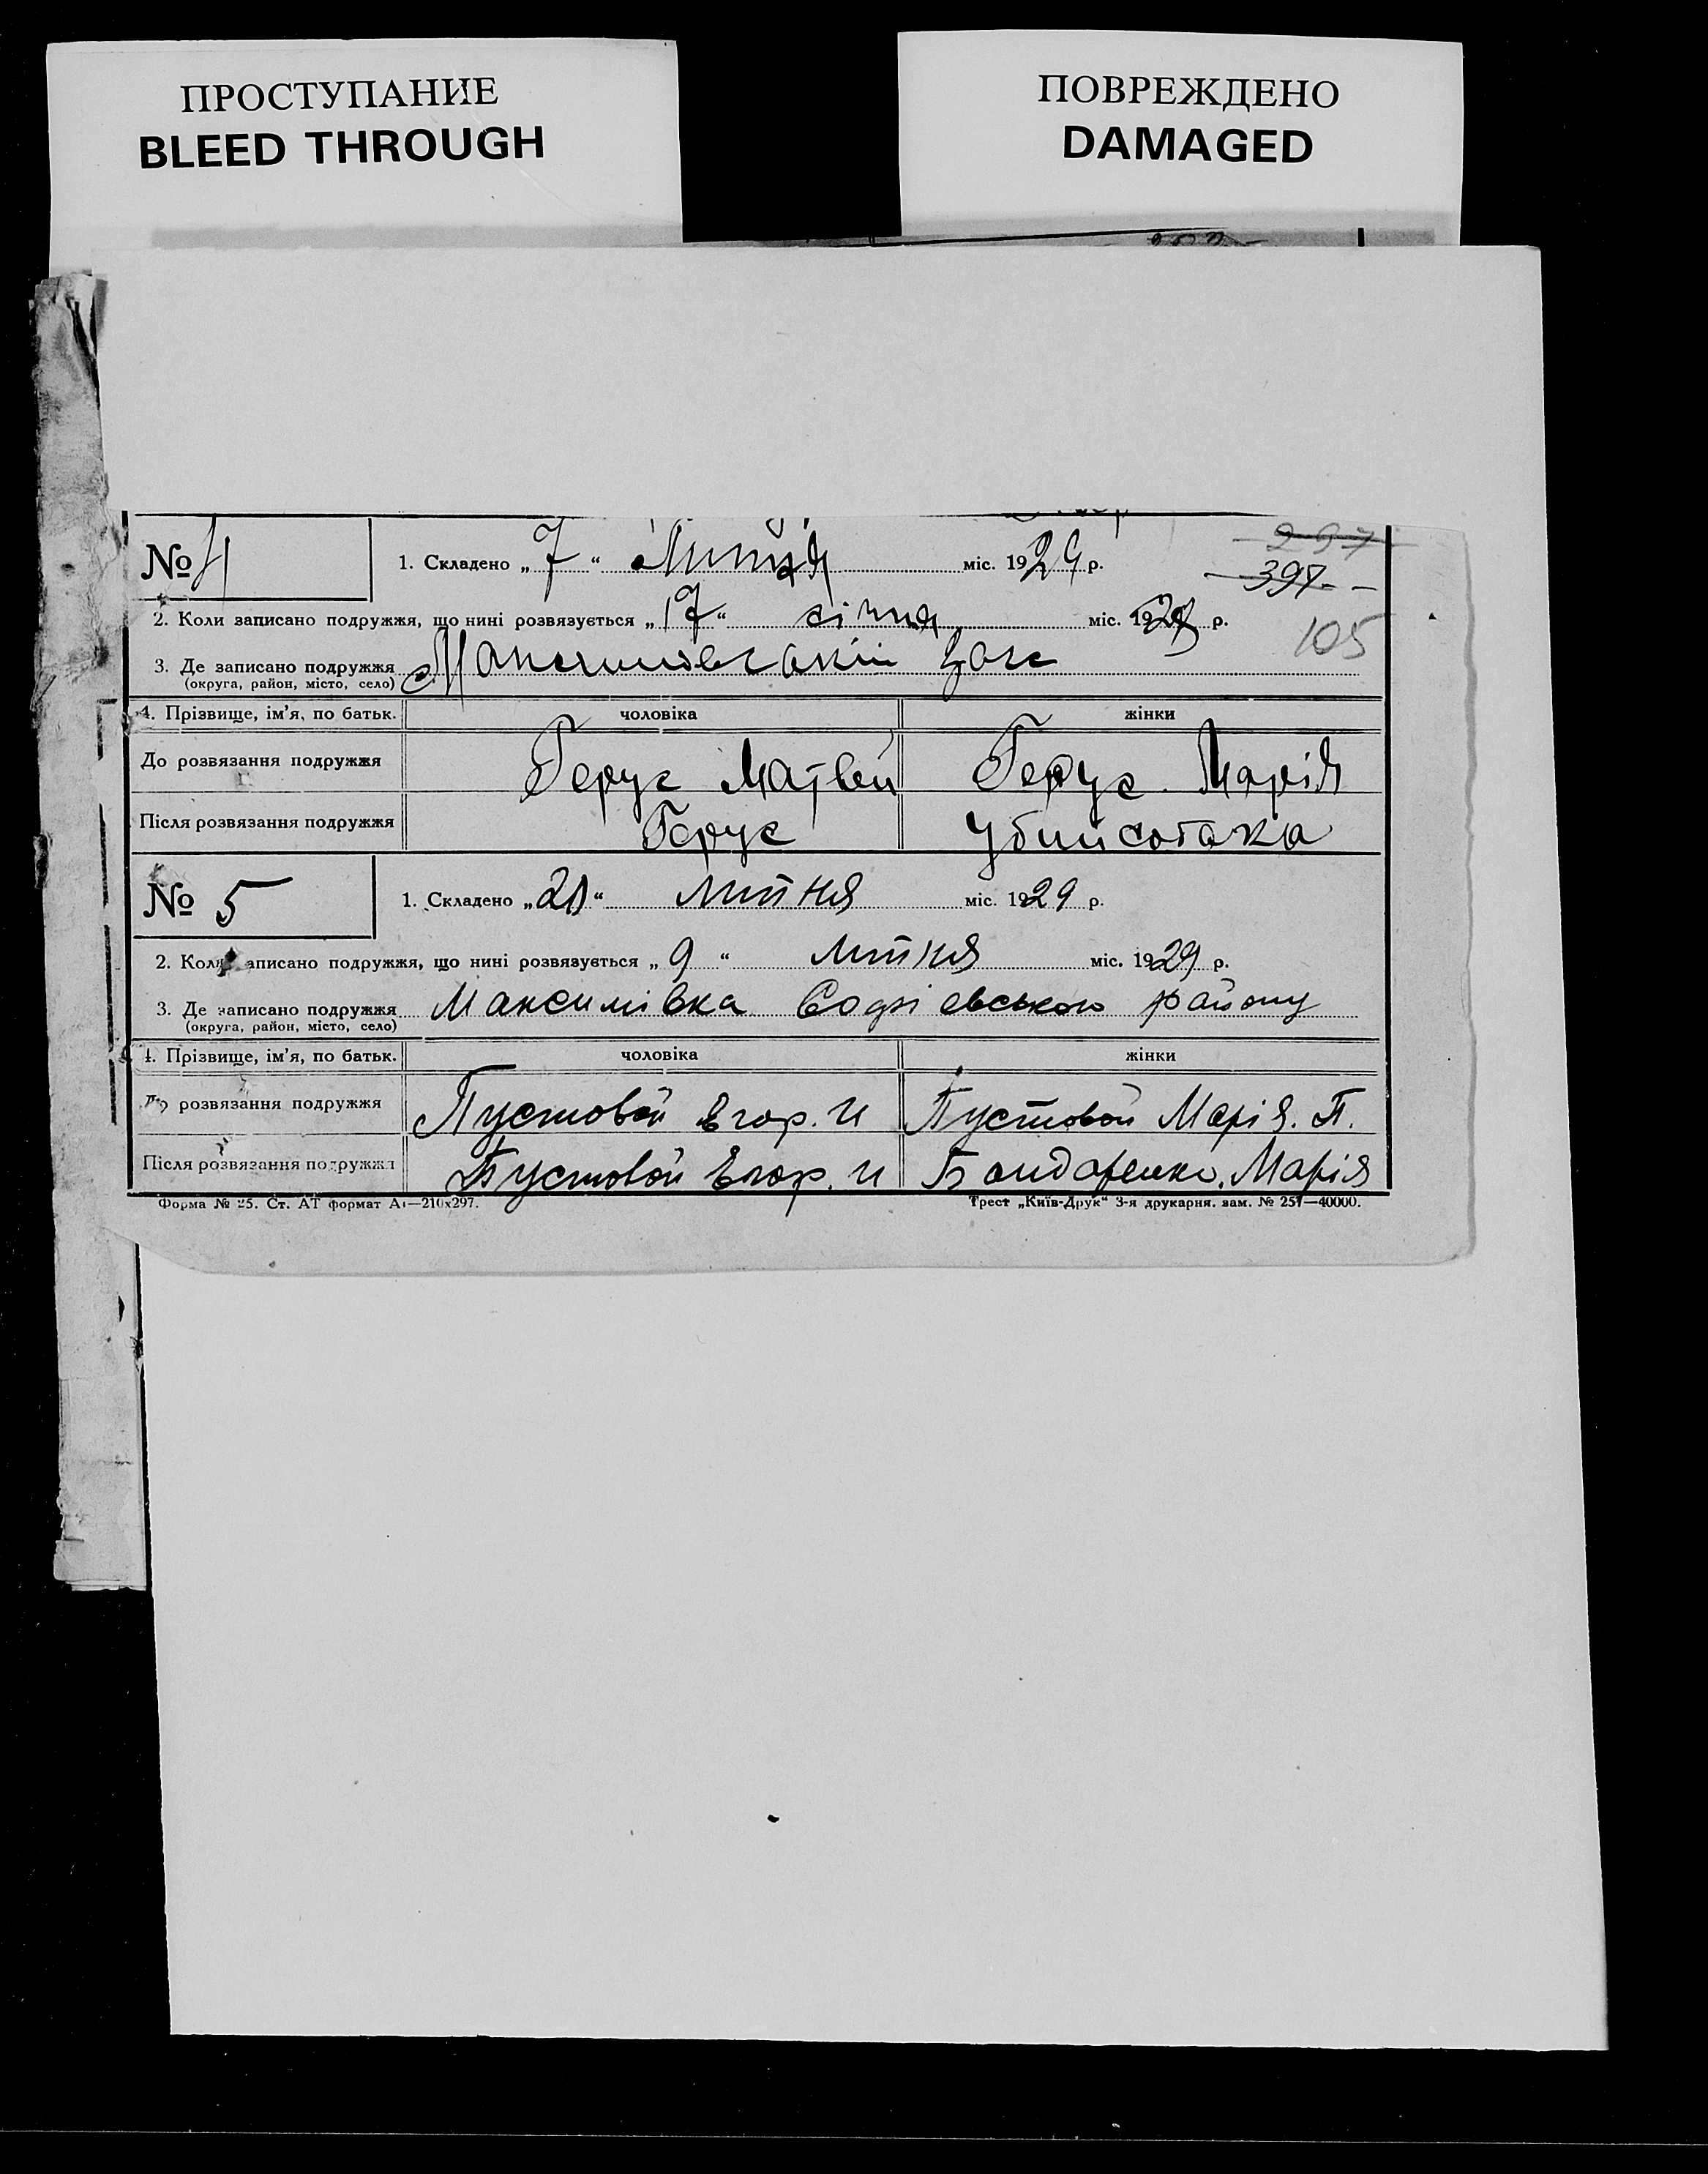 ПРОСТУПАНИЕ
BLEED THROUGH
ПОВРЕЖДЕНО
DAMAGED
297
№ 4 1. Складено „7“ Липня міс. 1929 р.
397
2. Коли записано подружжя, що нині розвязується „17“ січня міс. 19 р.
105
3. Де записано подружжя
(округа, район, місто, село)
4. Прізвище, ім'я, по батьк. чоловіка жінки
До розвязання подружжя Герус Матвей Герус Марія
Після розвязання подружжя Герус Убийсобака
№ 5 1. Складено „20“ липня міс. 1929 р.
2. Коли записано подружжя, що нині розвязується „9“ липня міс. 1929 р.
3. Де записано подружжя Максимівка Софіевського району
(округа, район, місто, село)
4. Прізвище, ім'я, по батьк. чоловіка жінки
До розвязання подружжя Пустовой Егор. И Пустовой Марія. П.
Після розвязання подружжя Пустовой Егор. И Бондаренко. Марія
Форма № 25. Ст. АТ формат А4—210х297. Трест „Київ-Друк“ 3-я друкарня. зам. № 257—40000.